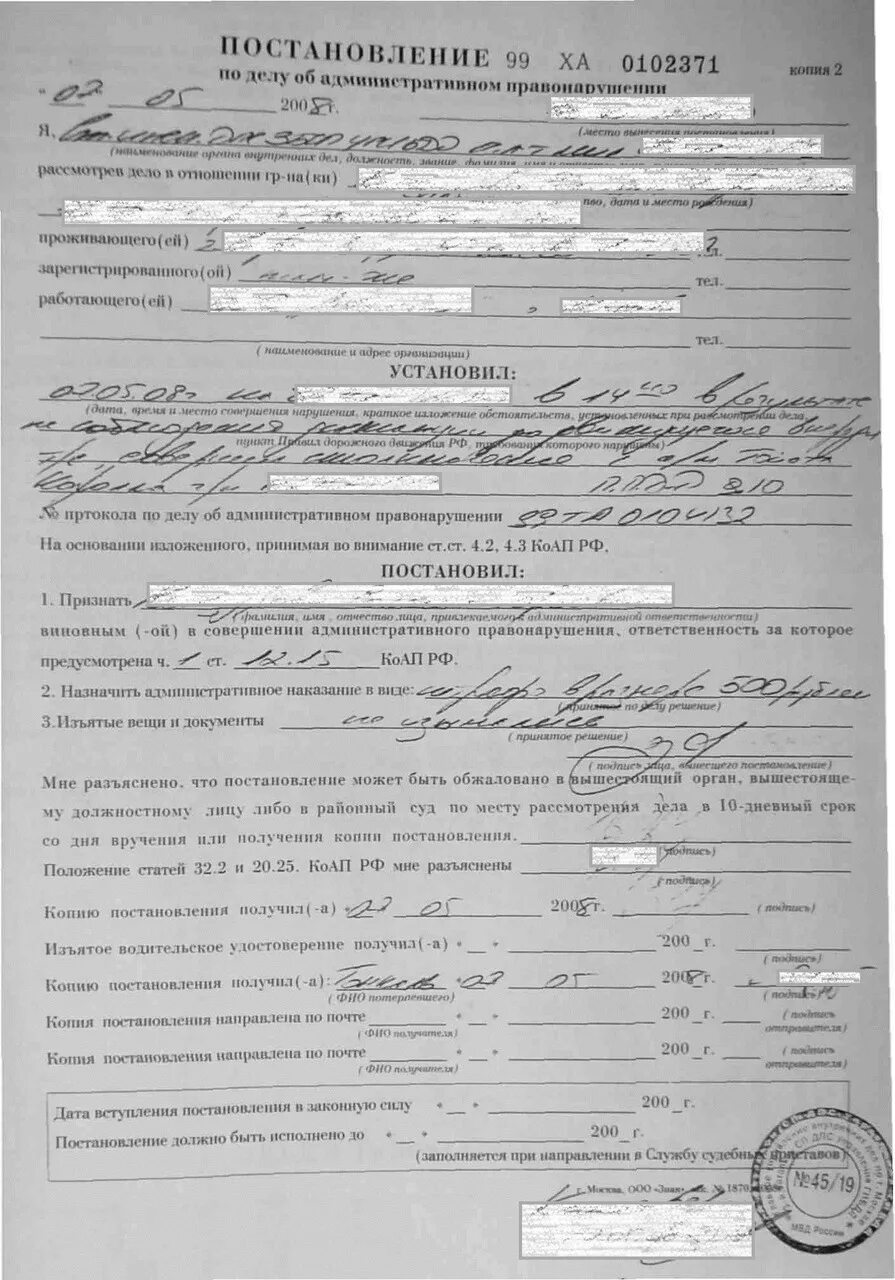 ПОСТАНОВЛЕНИЕ 99 ХА 0102371 копия 2
по делу об административном правонарушении
" 02 05 2008г.
(место вынесения постановления)
Я,
(наименование органа внутренних дел, должность, звание, фамилия, имя и отчество
рассмотрев дело в отношении гр-на(ки)
тво, дата и место рождения)
проживающего(ей)
зарегистрированного(ой) там-же тел.
работающего(ей)
тел.
(наименование и адрес организации)
УСТАНОВИЛ:
02.05.08г в 14 40 в результате
(дата, время и место совершения нарушения, краткое изложение обстоятельств, установленных при рассмотрении дела
не соблюдения дистанции до движущегося впереди
пункт Правил дорожного движения РФ, требования которого нарушены)
т/с совершил столкновение с а/м Тойота
Королла г/н П.ПДД 9.10
№ пртокола по делу об административном правонарушении 99ТА 0104132
На основании изложенного, принимая во внимание ст.ст. 4.2, 4.3 КоАП РФ,
ПОСТАНОВИЛ:
1. Признать
(фамилия, имя , отчество лица, привлекаемого к административной ответственности)
виновным (-ой) в совершении административного правонарушения, ответственность за которое
предусмотрена ч. 1 ст. 12.15 КоАП РФ.
2. Назначить административное наказание в виде: штрафа в размере 500 рублей
(принятое по делу решение)
3.Изъятые вещи и документы не изымались
(принятое решение)
(подпись лица, вынесшего постановление)
Мне разъяснено, что постановление может быть обжаловано в вышестоящий орган, вышестояще-
му должностному лицу либо в районный суд по месту рассмотрения дела в 10-дневный срок
со дня вручения или получения копии постановления.
(подпись)
Положение статей 32.2 и 20.25. КоАП РФ мне разъяснены
(подпись)
Копию постановления получил(-а) "02 05 2008г. (подпись)
Изъятое водительское удостоверение получил(-а) "_" 200_г.
(подпись)
Копию постановления получил(-а): "02 05 2008г.
(ФИО потерпевшего) (подпись)
Копия постановления направлена по почте "_" 200_г. (подпись
(ФИО получателя) отправителя)
Копия постановления направлена по почте "_" 200_г. (подпись
(ФИО получателя) отправителя)
Дата вступления постановления в законную силу "_" 200_г.
Постановление должно быть исполнено до "_" 200_г.
(заполняется при направлении в Службу судебных приставов)
г. Москва, ООО «Знак»
№45/19
МВД России